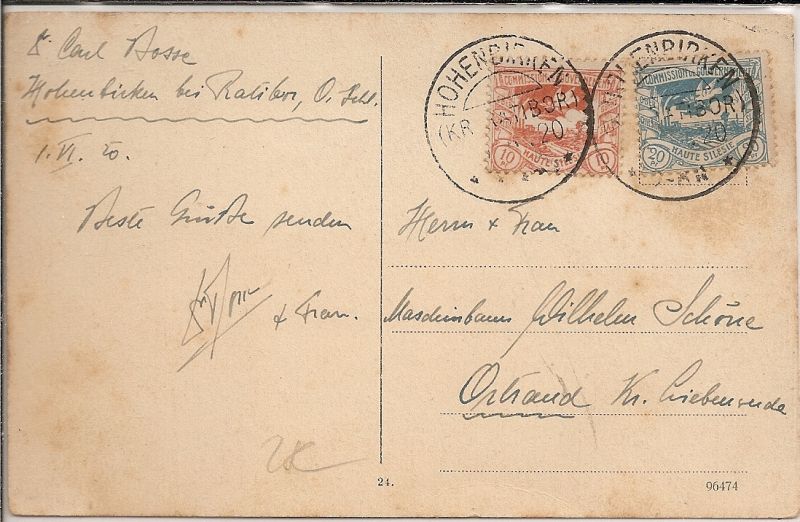 Carl Bosse
Hohenbirken bei Ratibor, O. Schl.
1. VI. 20.
Beste Grüße senden
& Frau.
HOHENBIRKEN
(KR. RATIBOR)
20
COMMISSION DE GOUVERNEMENT
10 HAUTE SILESIE 10
HOHENBIRKEN
RATIBOR)
20
COMMISSION DE GOUVERNEMENT
20 HAUTE SILESIE
Herrn & Frau
Maschinenbauer Wilhelm Schöne
Ortrand Kr. Liebenwerda
24.
96474